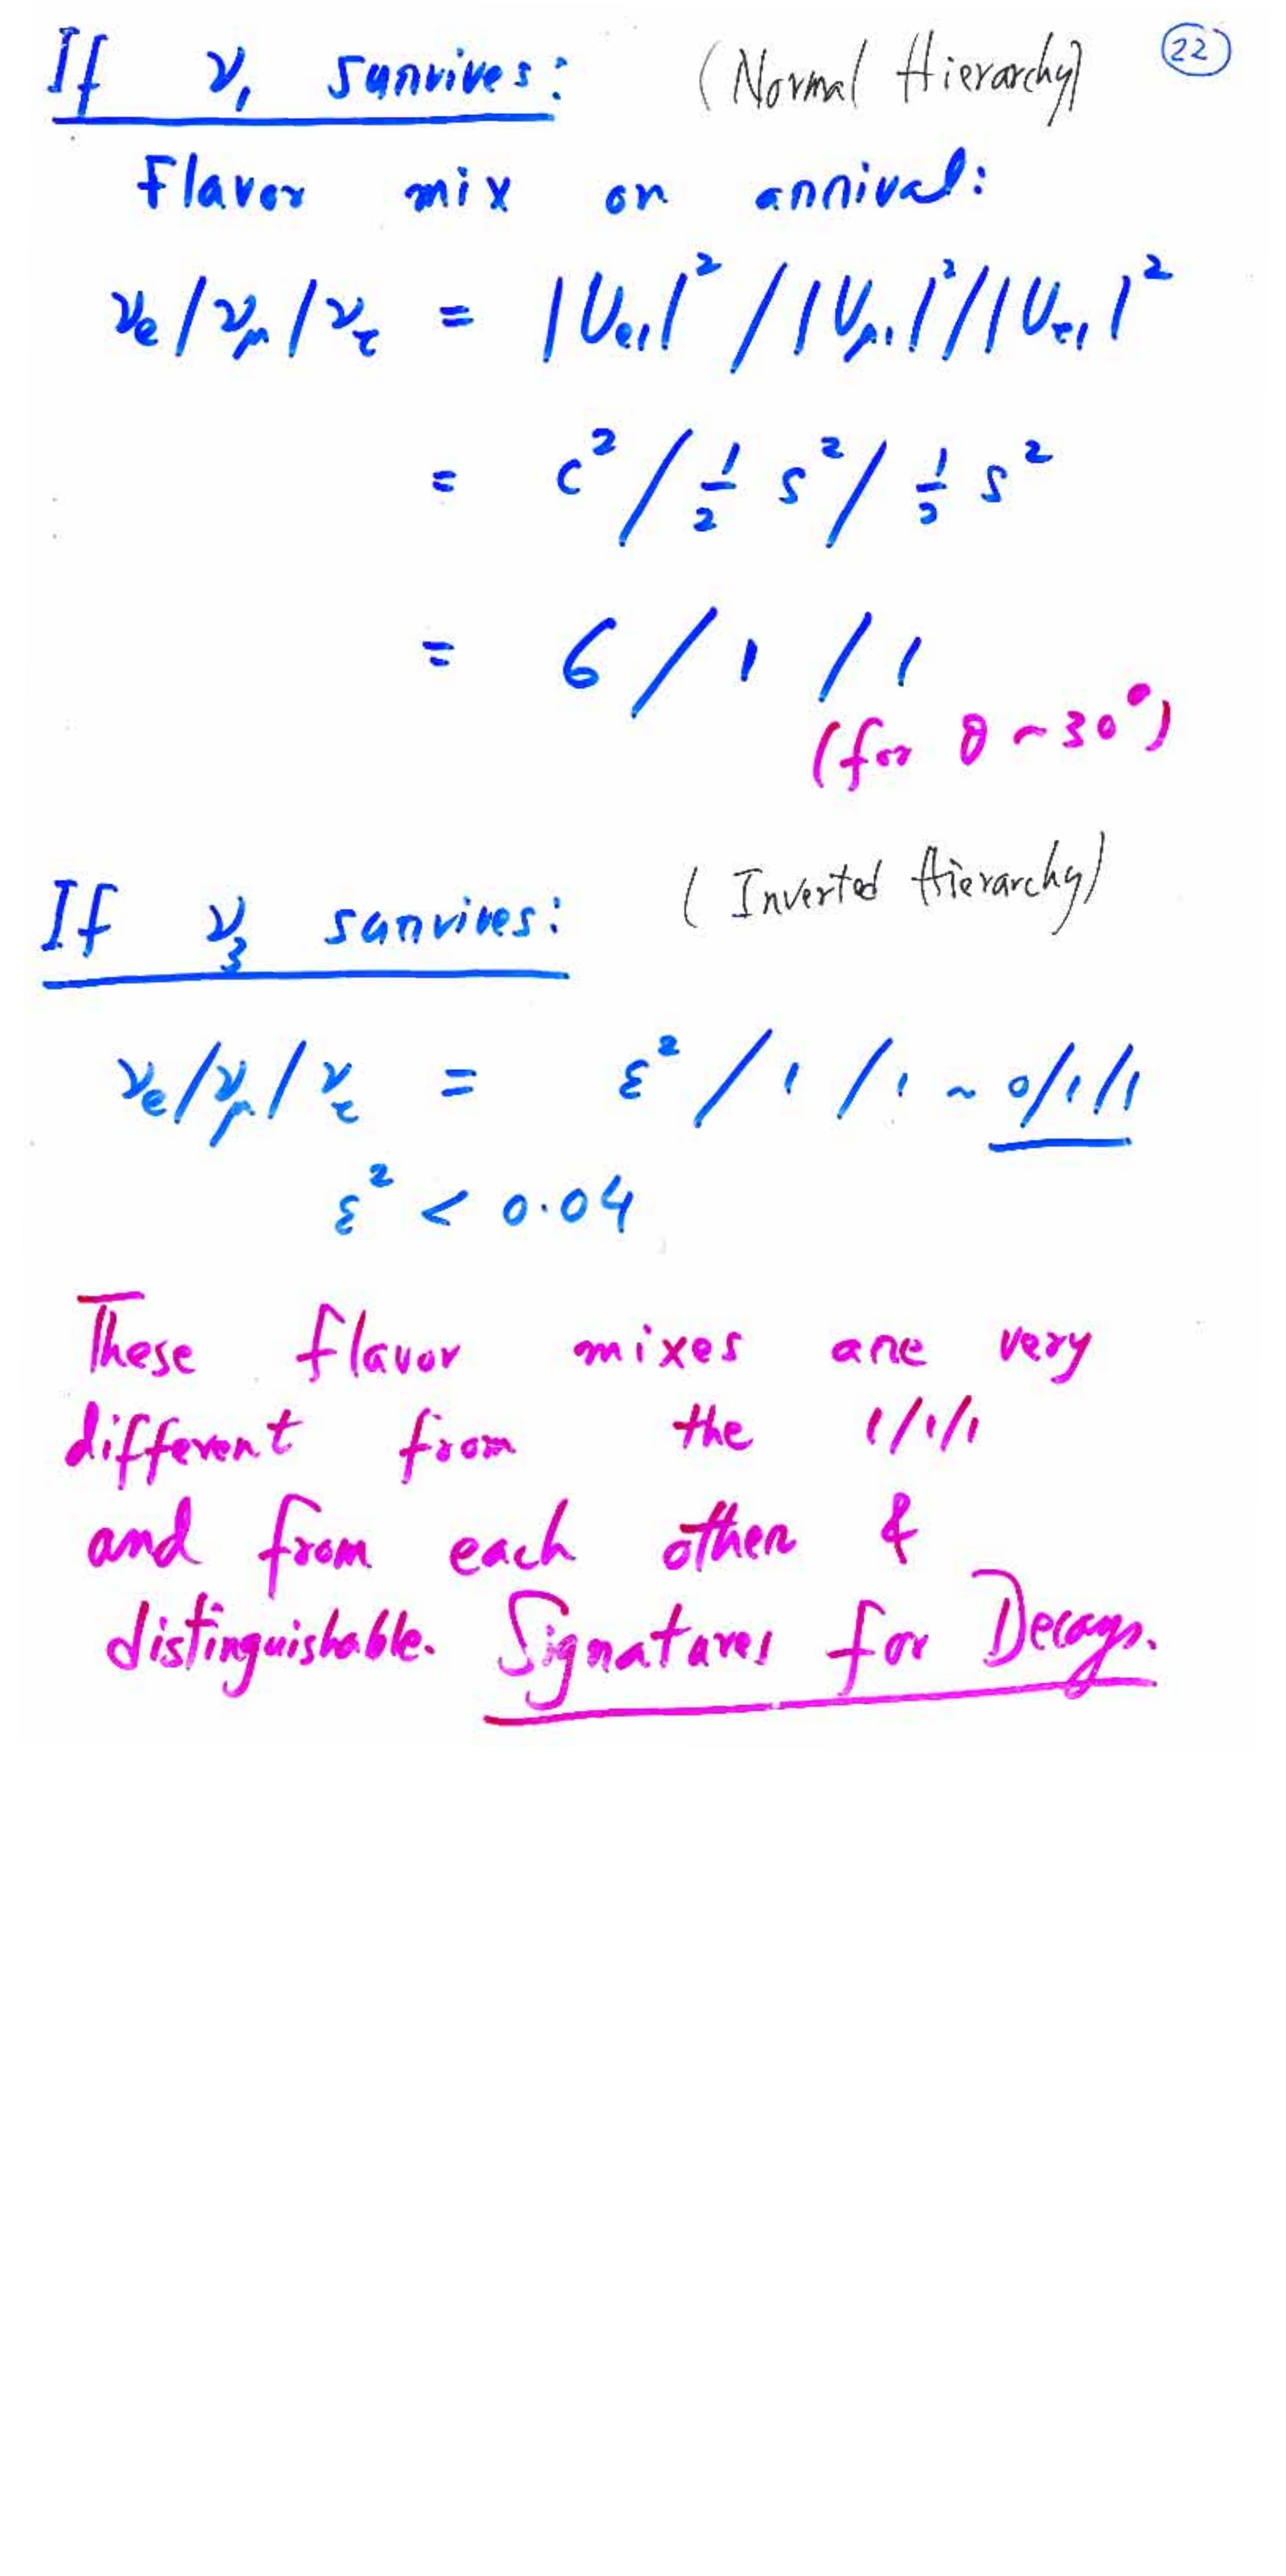 If ν₁ survives: (Normal Hierarchy) 22
Flavor mix on arrival:
νe/νμ/ντ = |Ue1|²/|Uμ1|²/|Uτ1|²
= c²/½ s²/½ s²
= 6/1/1
(for θ ~ 30°)
If ν₃ survives: (Inverted Hierarchy)
νe/νμ/ντ = ε²/1/1 ~ 0/1/1
ε² < 0.04
These flavor mixes are very
different from the 1/1/1
and from each other &
distinguishable. Signatures for Decays.